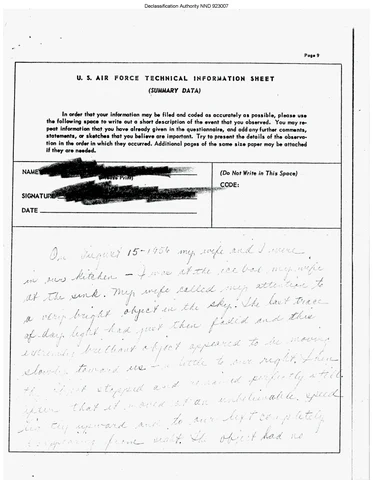 Declassification Authority NND 923007
Page 9
U. S. AIR FORCE TECHNICAL INFORMATION SHEET
(SUMMARY DATA)
In order that your information may be filed and coded as accurately as possible, please use
the following space to write out a short description of the event that you observed. You may re-
peat information that you have already given in the questionnaire, and add any further comments,
statements, or sketches that you believe are important. Try to present the details of the observa-
tion in the order in which they occurred. Additional pages of the same size paper may be attached
if they are needed.
NAME
(Please Print)
SIGNATURE
DATE
(Do Not Write in This Space)
CODE:
On August 15-1956 my wife and I were
in our kitchen - I was at the ice box, my wife
at the sink. My wife called my attention to
a very bright object in the sky. The last trace
of day light had just then faded and this
brilliant object appeared to be moving
slowly toward us - a little to our right. Then
object stopped and remained perfectly still
then that it moved at an unbelievable speed
upward and to our left completely
from sight. The object had no